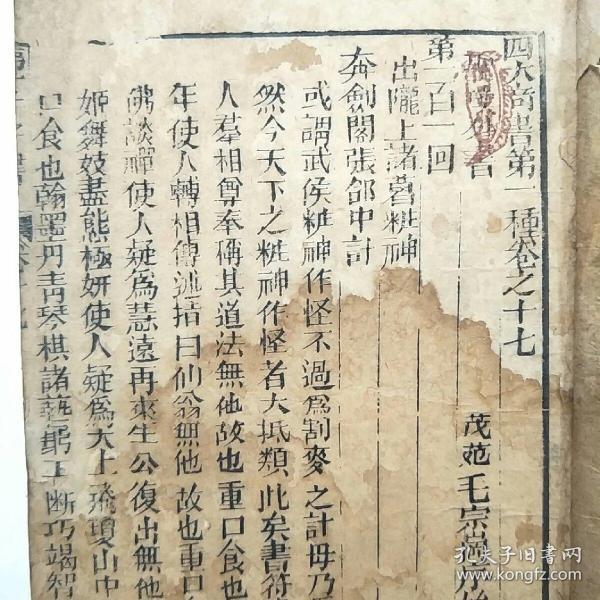 四大奇書第一種卷之十七
茂苑毛宗崗序始
第一百一回
出隴上諸葛粧神
奔劍閣張郃中計
或謂武侯粧神作怪不過為割麥之計毋乃
然今天下之粧神作怪者大抵類此矣書符
人羣相尊奉稱其道法無他故也重口食也
年使人轉相傳述指曰仙翁無他故也重口
佛談禪使人疑為慧遠再來生公復出無他
姬舞妓盡態極妍使人疑為天上飛瓊山中
口食也翰墨丹青琴棋諸藝斷巧竭智
孔夫子旧书网
www.kongfz.com